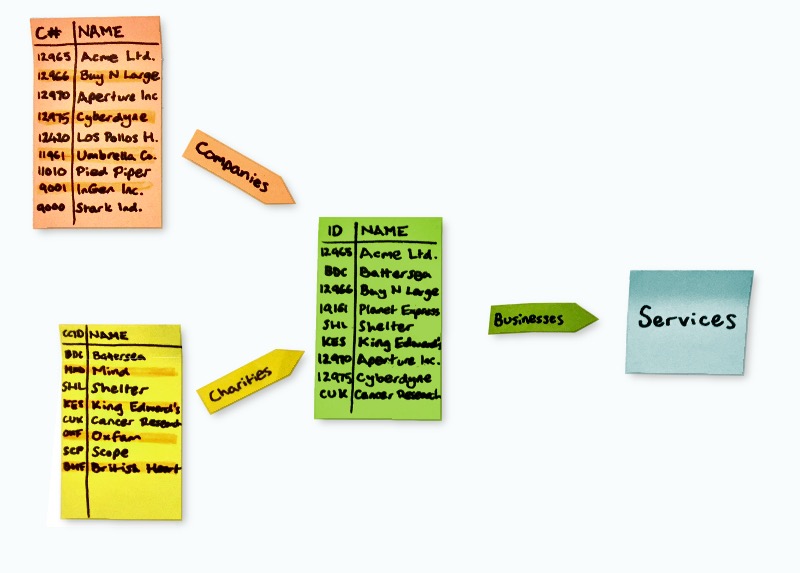 C# NAME
12965 Acme Ltd.
12966 Buy N Large
12970 Aperture Inc
12975 Cyberdyne
12420 Los Pollos H.
11961 Umbrella Co.
11010 Pied Piper
9001 InGen Inc.
9000 Stark Ind.
Companies
CCID NAME
BDC Battersea
MND Mind
SHL Shelter
KES King Edward's
CUK Cancer Research
OXF Oxfam
SCP Scope
BHF British Heart
Charities
ID NAME
12965 Acme Ltd.
BDC Battersea
12966 Buy N Large
19161 Planet Express
SHL Shelter
KES King Edward's
12970 Aperture Inc.
12975 Cyberdyne
CUK Cancer Research
Businesses
Services